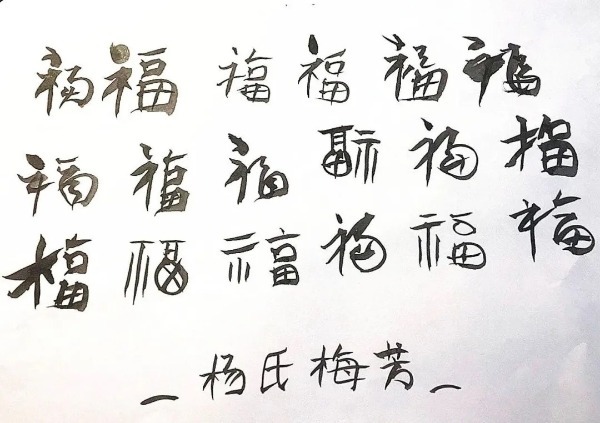 福福福福福福
福福福福福福
福福福福福福
—杨氏梅芳—